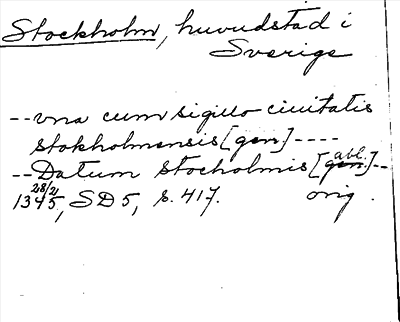 Stockholm, huvudstad i
Sverige
--vna cum sigillo ciuitatis
stokholmensis [gen]----
--Datum stocholmis [gen. abl.]--
28/2 1345, SD 5, s. 417. orig.